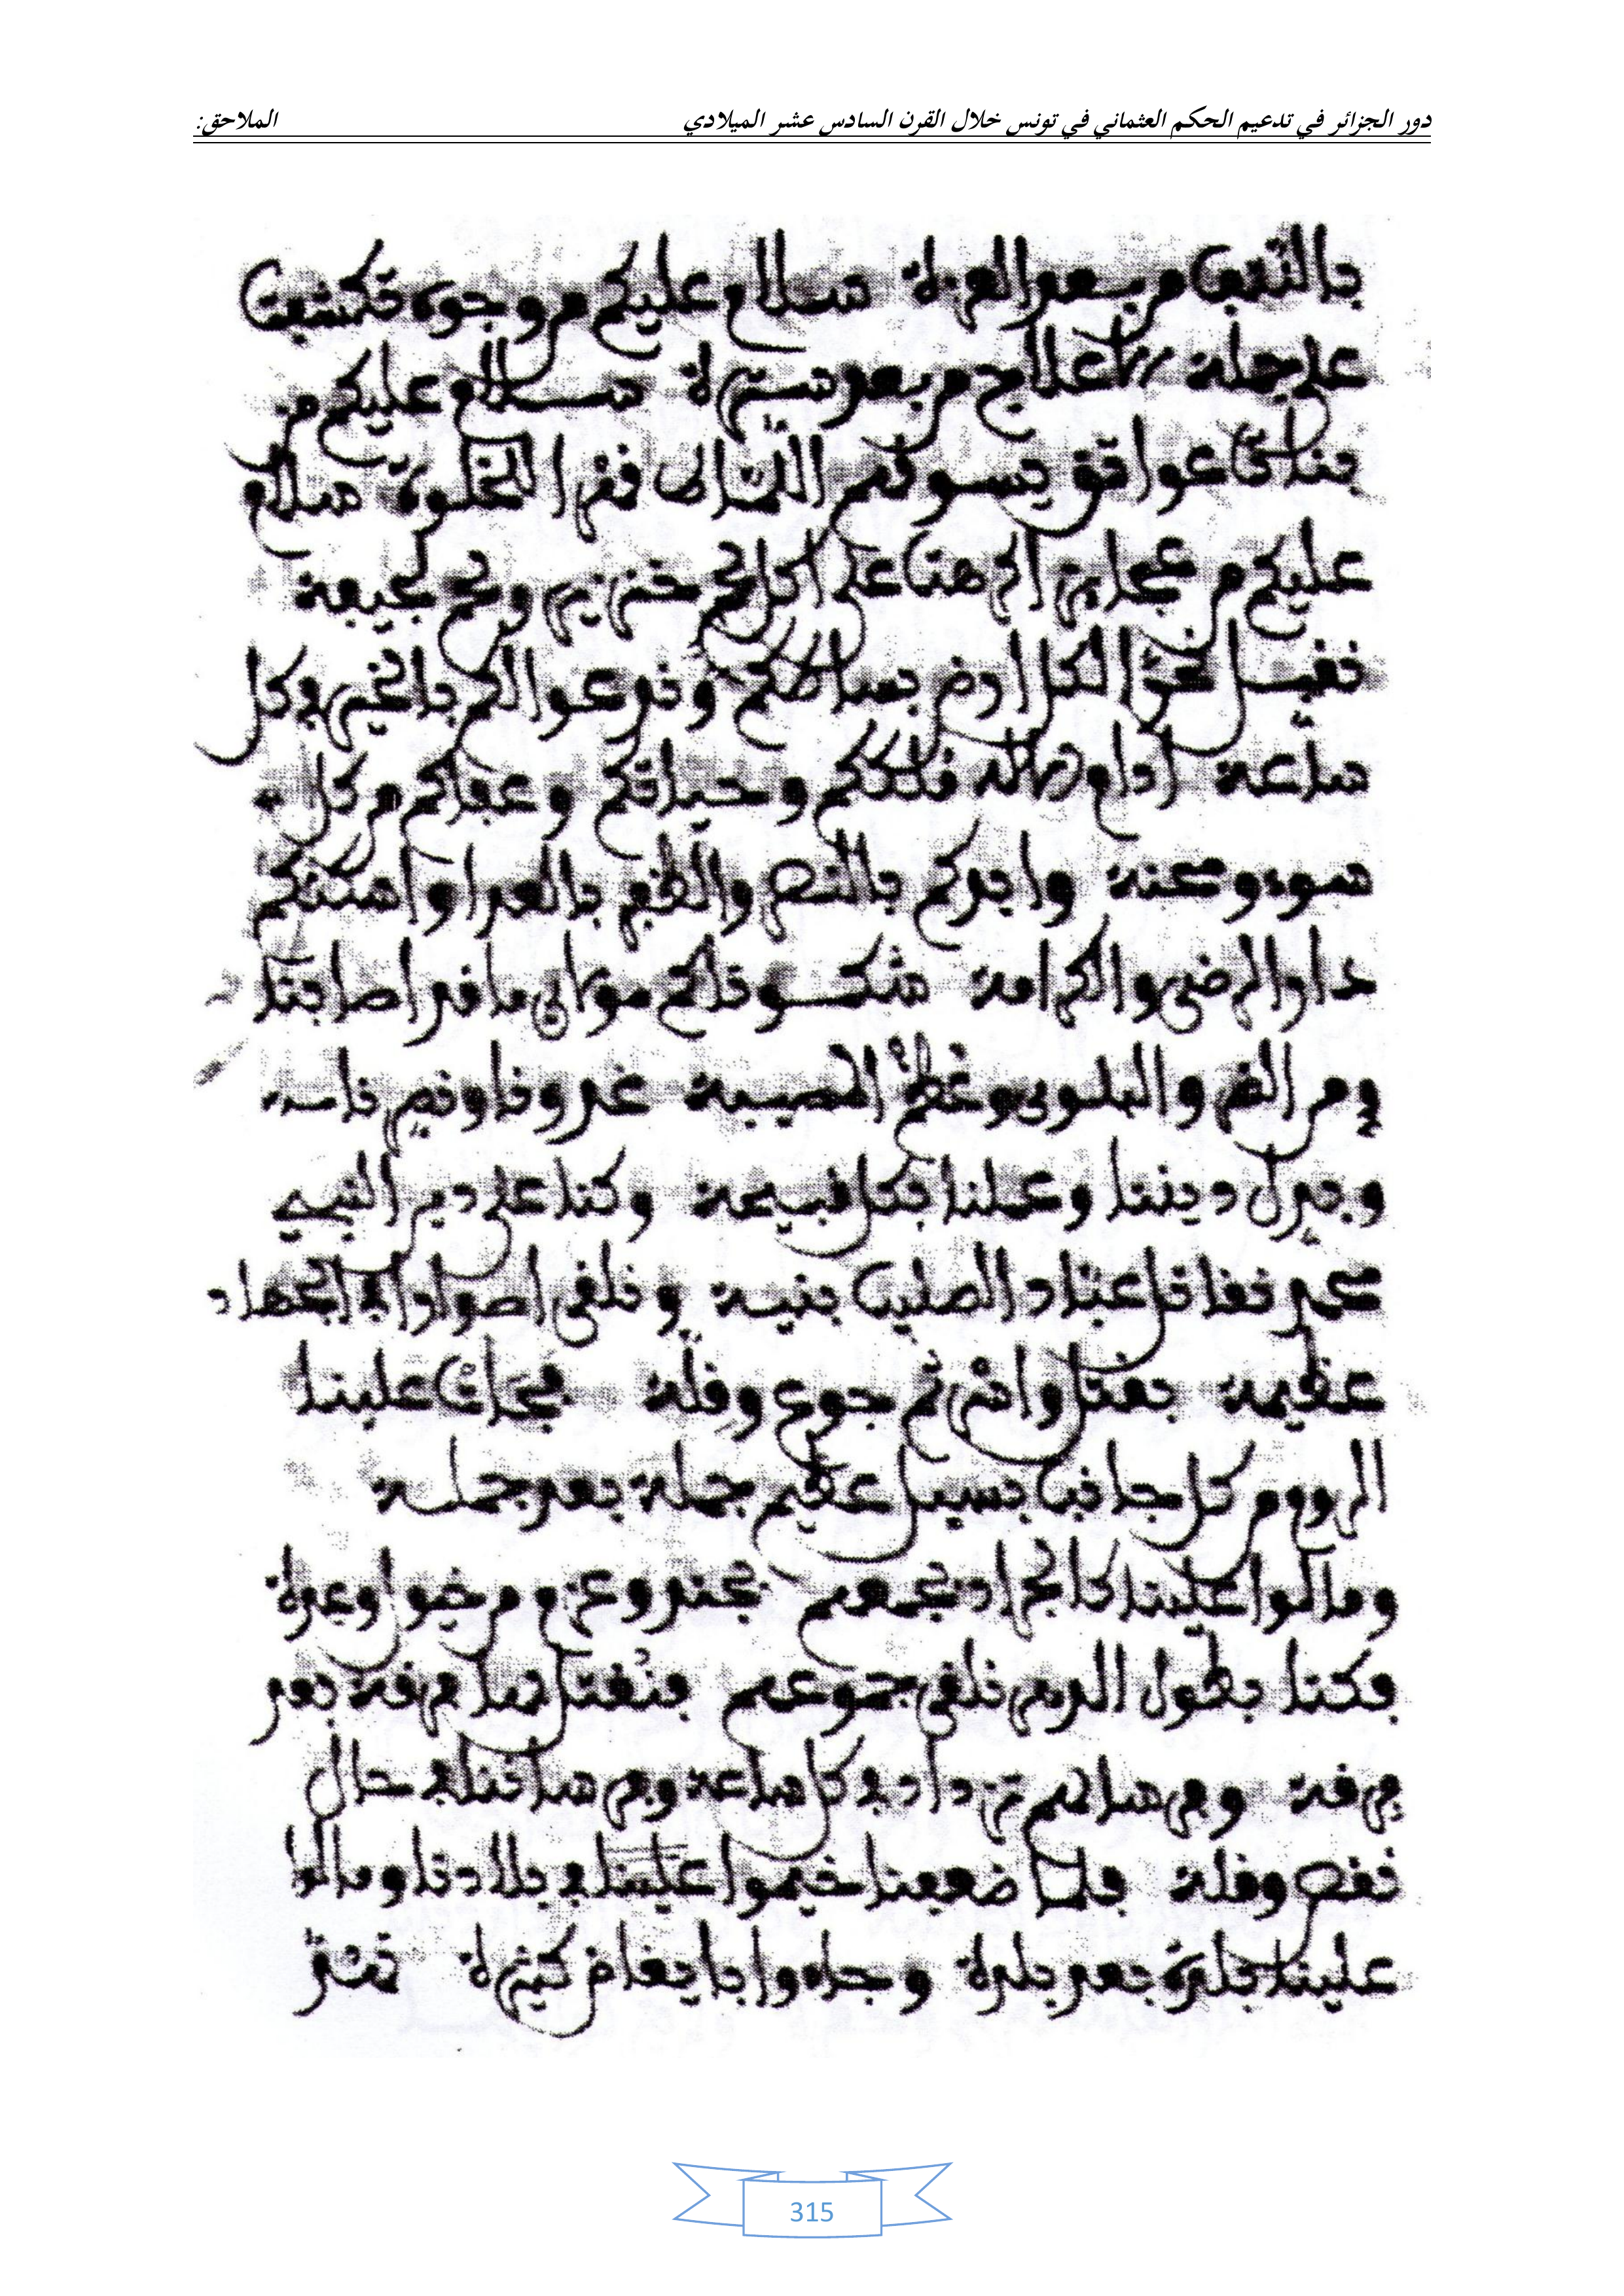 دور الجزائر في تدعيم الحكم العثماني في تونس خلال القرن السادس عشر الميلادي الملاحق:
بالنتف من بعد العزة سلام عليكم من وجوه تكشفت
على جملة الأعلاج من بعد سترة سلام عليكم من
بنات عواتق يسوقهم اللباط قهرا لخلوة سلام
عليكم من عجايز أكرهنا على أكل لحم خنزير ولحم لجيفة
نقبل نحن الكل أرض بساطكم وندعوا لكم بالخير في كل
ساعة أدام الاله ملككم وحياتكم وعفاكم من كل
سوء ومحنة وايدكم بالنصر والظفر بالعدا واسكنكم
دار الرضى والكرامة شكونا لكم مولاي ما قد اصابنا
ومن الضر والبلوى وعظم المصيبة غدرنا ونصرنا
وبدل ديننا وعملنا بكل قبيحة وكنا على دين النبي
محمد نقاتل عباد الصليب بنية ونلقى امورا في الجهاد
عظيمة بقتل واسر ثم جوع وقلة فجاءت علينا
الروم من كل جانب بسيل عظيم جملة بعد جملة
ومالوا علينا كالجراد بجمعهم بجد وعزم من خيول وعدة
فكنا بطول الدهر نلقى جموعهم فنقتل فيها فرقة بعد
فرقة وفرسانهم تزداد في كل ساعة وفرساننا في حال
نقص وقلة فلما ضعفنا خيموا علينا في بلادنا ومالوا
علينا بلدة بعد بلدة وجاءوا بانفاض كثيرة تهد
315